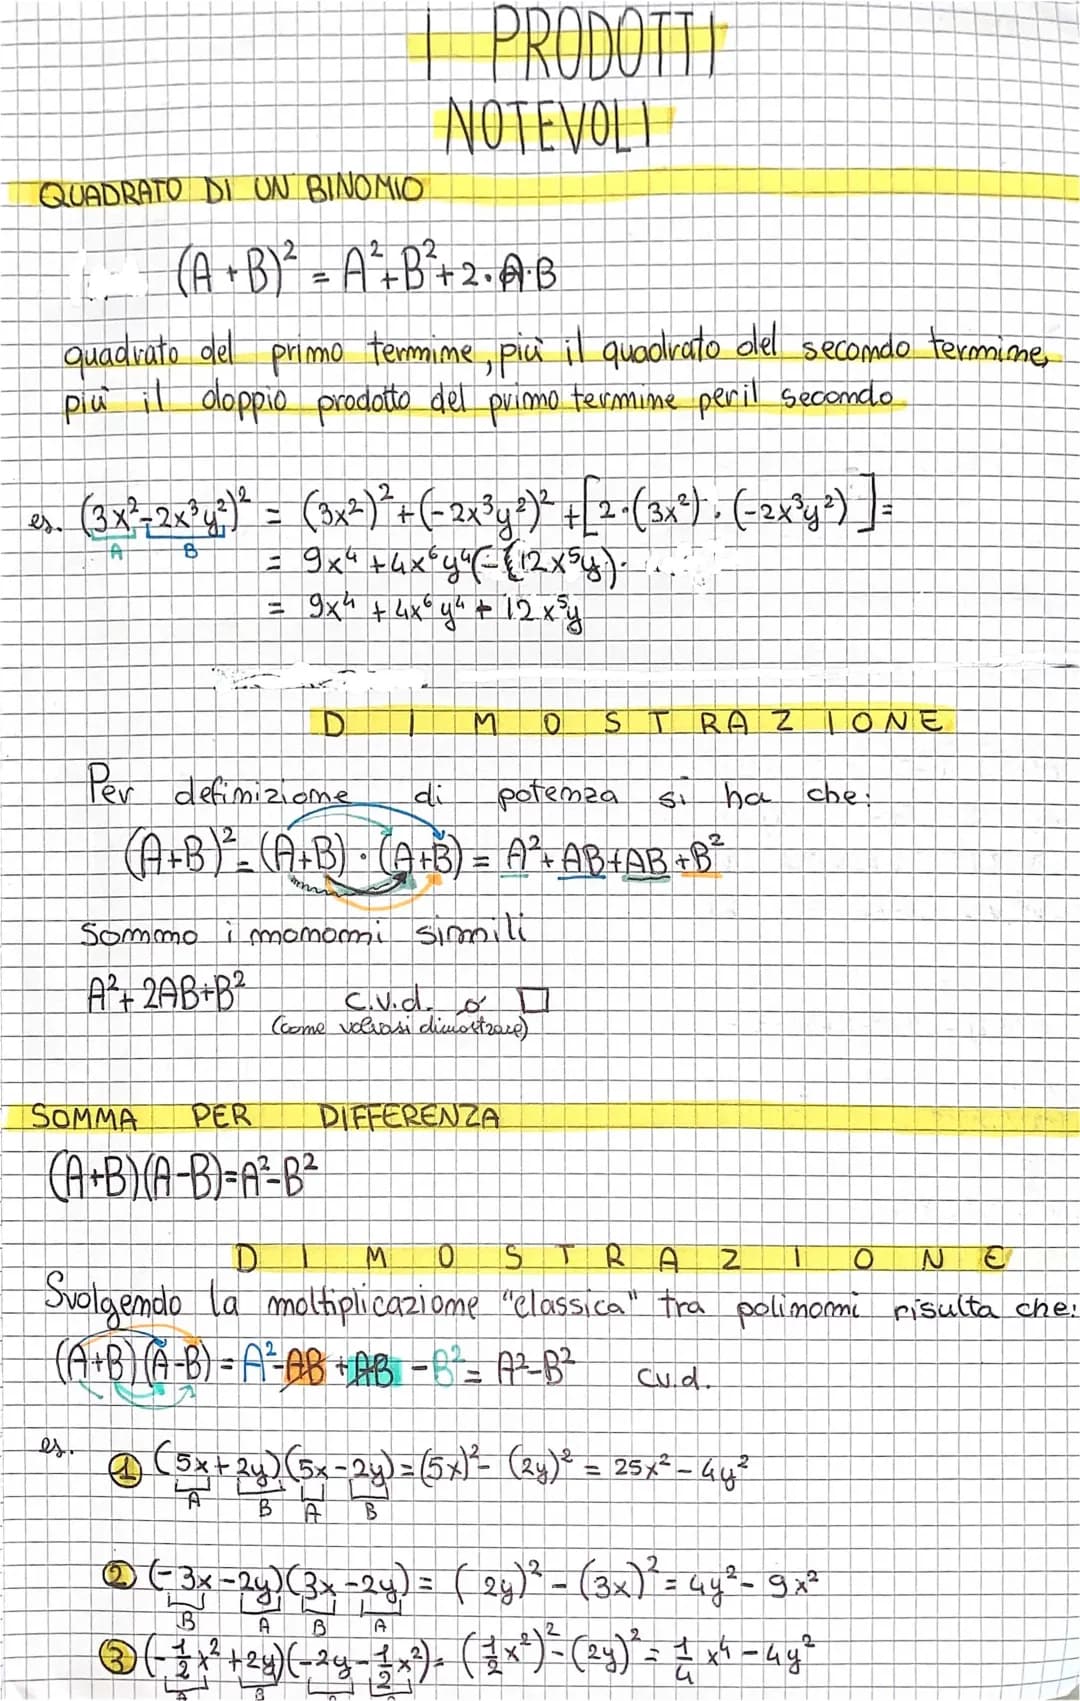 I PRODOTTI
NOTEVOLI
QUADRATO DI UN BINOMIO
(A+B)² = A²+B²+2·A·B
quadrato del primo termine, più il quadrato del secondo termine,
più il doppio prodotto del primo termine per il secondo
es. (3x²-2x³y²)² = (3x²)²+(-2x³y²)²+[2·(3x²)·(-2x³y²)]=
A B
= 9x⁴+4x⁶y⁴(-(12x⁵y).
= 9x⁴+4x⁶y⁴+12x⁵y
DIMOSTRAZIONE
Per definizione di potenza si ha che:
(A+B)²=(A+B)·(A+B)= A²+AB+AB+B²
Sommo i monomi simili
A²+2AB+B² c.v.d. o □
(come volevasi dimostrare)
SOMMA PER DIFFERENZA
(A+B)(A-B)=A²-B²
DIMOSTRAZIONE
Svolgendo la moltiplicazione "classica" tra polinomi risulta che:
(A+B)(A-B)=A²-AB+AB-B²=A²-B² c.v.d.
es.
① (5x+2y)(5x-2y)=(5x)²-(2y)²=25x²-4y²
A B A B
② (-3x-2y)(3x-2y)=(2y)²-(3x)²=4y²-9x²
B A B A
③ (-1/2x²+2y)(-2y-1/2x²)=(1/2x²)²-(2y)²=1/4x⁴-4y²